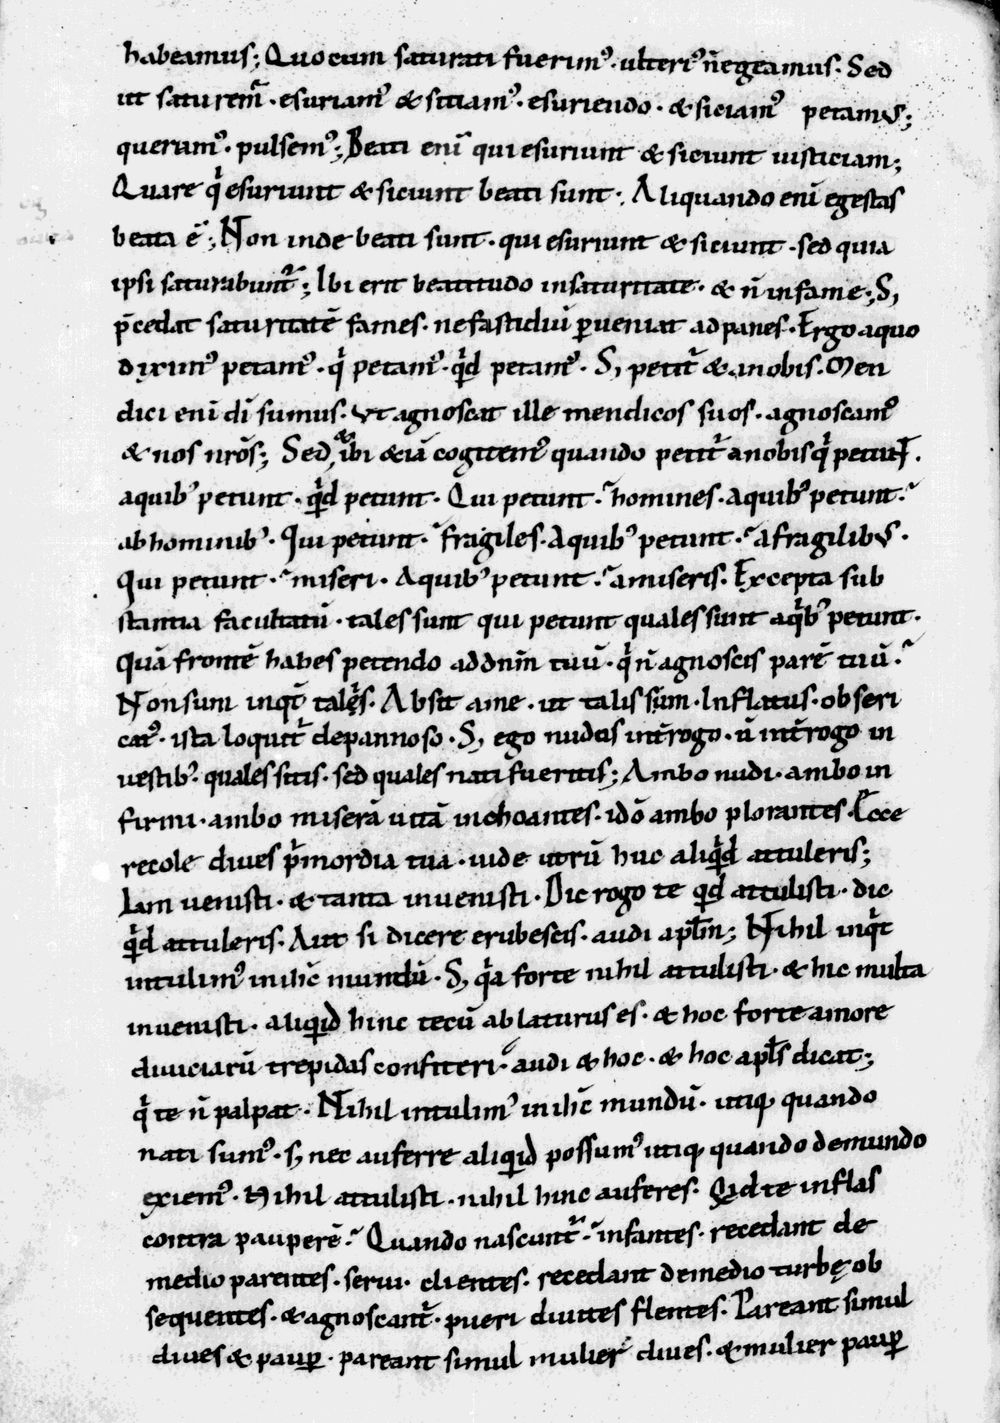 habeamus; Quo cum saturati fuerim᾽· ulteri᾽ n̄ egeamus· Sed
ut saturem̃· esuriam᾽ & sitiam᾽· esuriendo· & siciam᾽ petamus;
queram᾽· pulsem᾽; Beati enī qui esuriunt & siciunt iusticiam;
Quare q̇ esuriunt & siciunt beati sunt· Aliquando enī egestas
beata ē; Non inde beati sunt· qui esuriunt & siciunt· sed quia
ipsi saturabunt̃; Ibi erit beatitudo in saturitate· & n̄ in fame; S;
p̄cedat saturitatē fames· ne fastidiū ꝑueniat ad panes· Ergo a quo
dixim᾽ petam᾽· q̇ petam᾽· q̇d petam᾽· S; petit̃ & a nobis· Men
dici enī dī sumus· Vt agnoscat ille mendicos suos· agnoscam᾽
& nos nr̄os; Sed & ibi & iā cogitem᾽ quando petit̃ a nobis q̇ petunt·
a quib᾽ petunt· q̇d petunt· Qui petunt· homines· A quib᾽ petunt·
ab hominib᾽· Qui petunt· fragiles· A quib᾽ petunt· a fragilibus·
Qui petunt· miseri· A quib᾽ petunt· a miseris· Excepta sub
stantia facultatū· tales sunt qui petunt quales sunt a q̇b᾽ petunt·
Quā frontē habes petendo ad dn̄m tuū· q̇ n̄ agnoscis parē tuū·
Non sum inq̇t talis· Absit a me· ut talis sim· Inflatus· obseri
cat᾽· ista loquit̃ de pannoso· S; ego nudos int̄rogo· n̄ int̄rogo in
uestib᾽ quales sitis· sed quales nati fueritis; Ambo nudi· ambo in
firmi· ambo miserā uitā inchoantes· idō ambo plorantes· Ecce
recole diues p̓mordia tua· uide utrū huc aliq̇d attuleris;
Iam uenisti· & tanta inuenisti· Dic rogo te q̇d attulisti· dic
q̇d attuleris· Aut si dicere erubescis· audi apl̄m; Nihil inq̇t
intulim᾽ in ih̄c mundū· S; q̇a forte nihil attulisti· & hic multa
inuenisti· aliq̇id hinc tecū ablaturus es· & hoc forte amore
diuiciarū trepidas confiteri· audi & hoc· & hoc apl̄s dicat;
q̇ te n̄ palpat· Nihil intulim᾽ in ih̄c mundū· utiq; quando
nati sum᾽· s; nec auferre aliq̇id possum᾽ utiq; quando de mundo
exiem᾽· Nihil attulisti· nihil hinc auferes· Q̇d te inflas
contra pauperē· Quando nascunt̃· infantes· recedant de
medio parentes· serui· clientes· recedant de medio turbę ob
sequentes· & agnoscant̃· pueri diuites flentes· Pareant simul
diues & pauꝑ· pareant simul mulier diues· & mulier pauꝑ